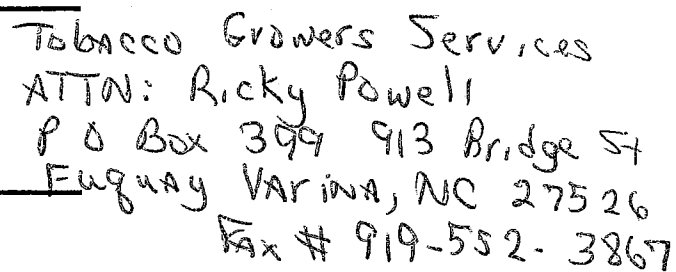 Tobacco Growers Services
ATTN: Ricky Powell
P O Box 399 913 Bridge St
Fuquay Varina, NC 27526
Fax # 919-552-3867